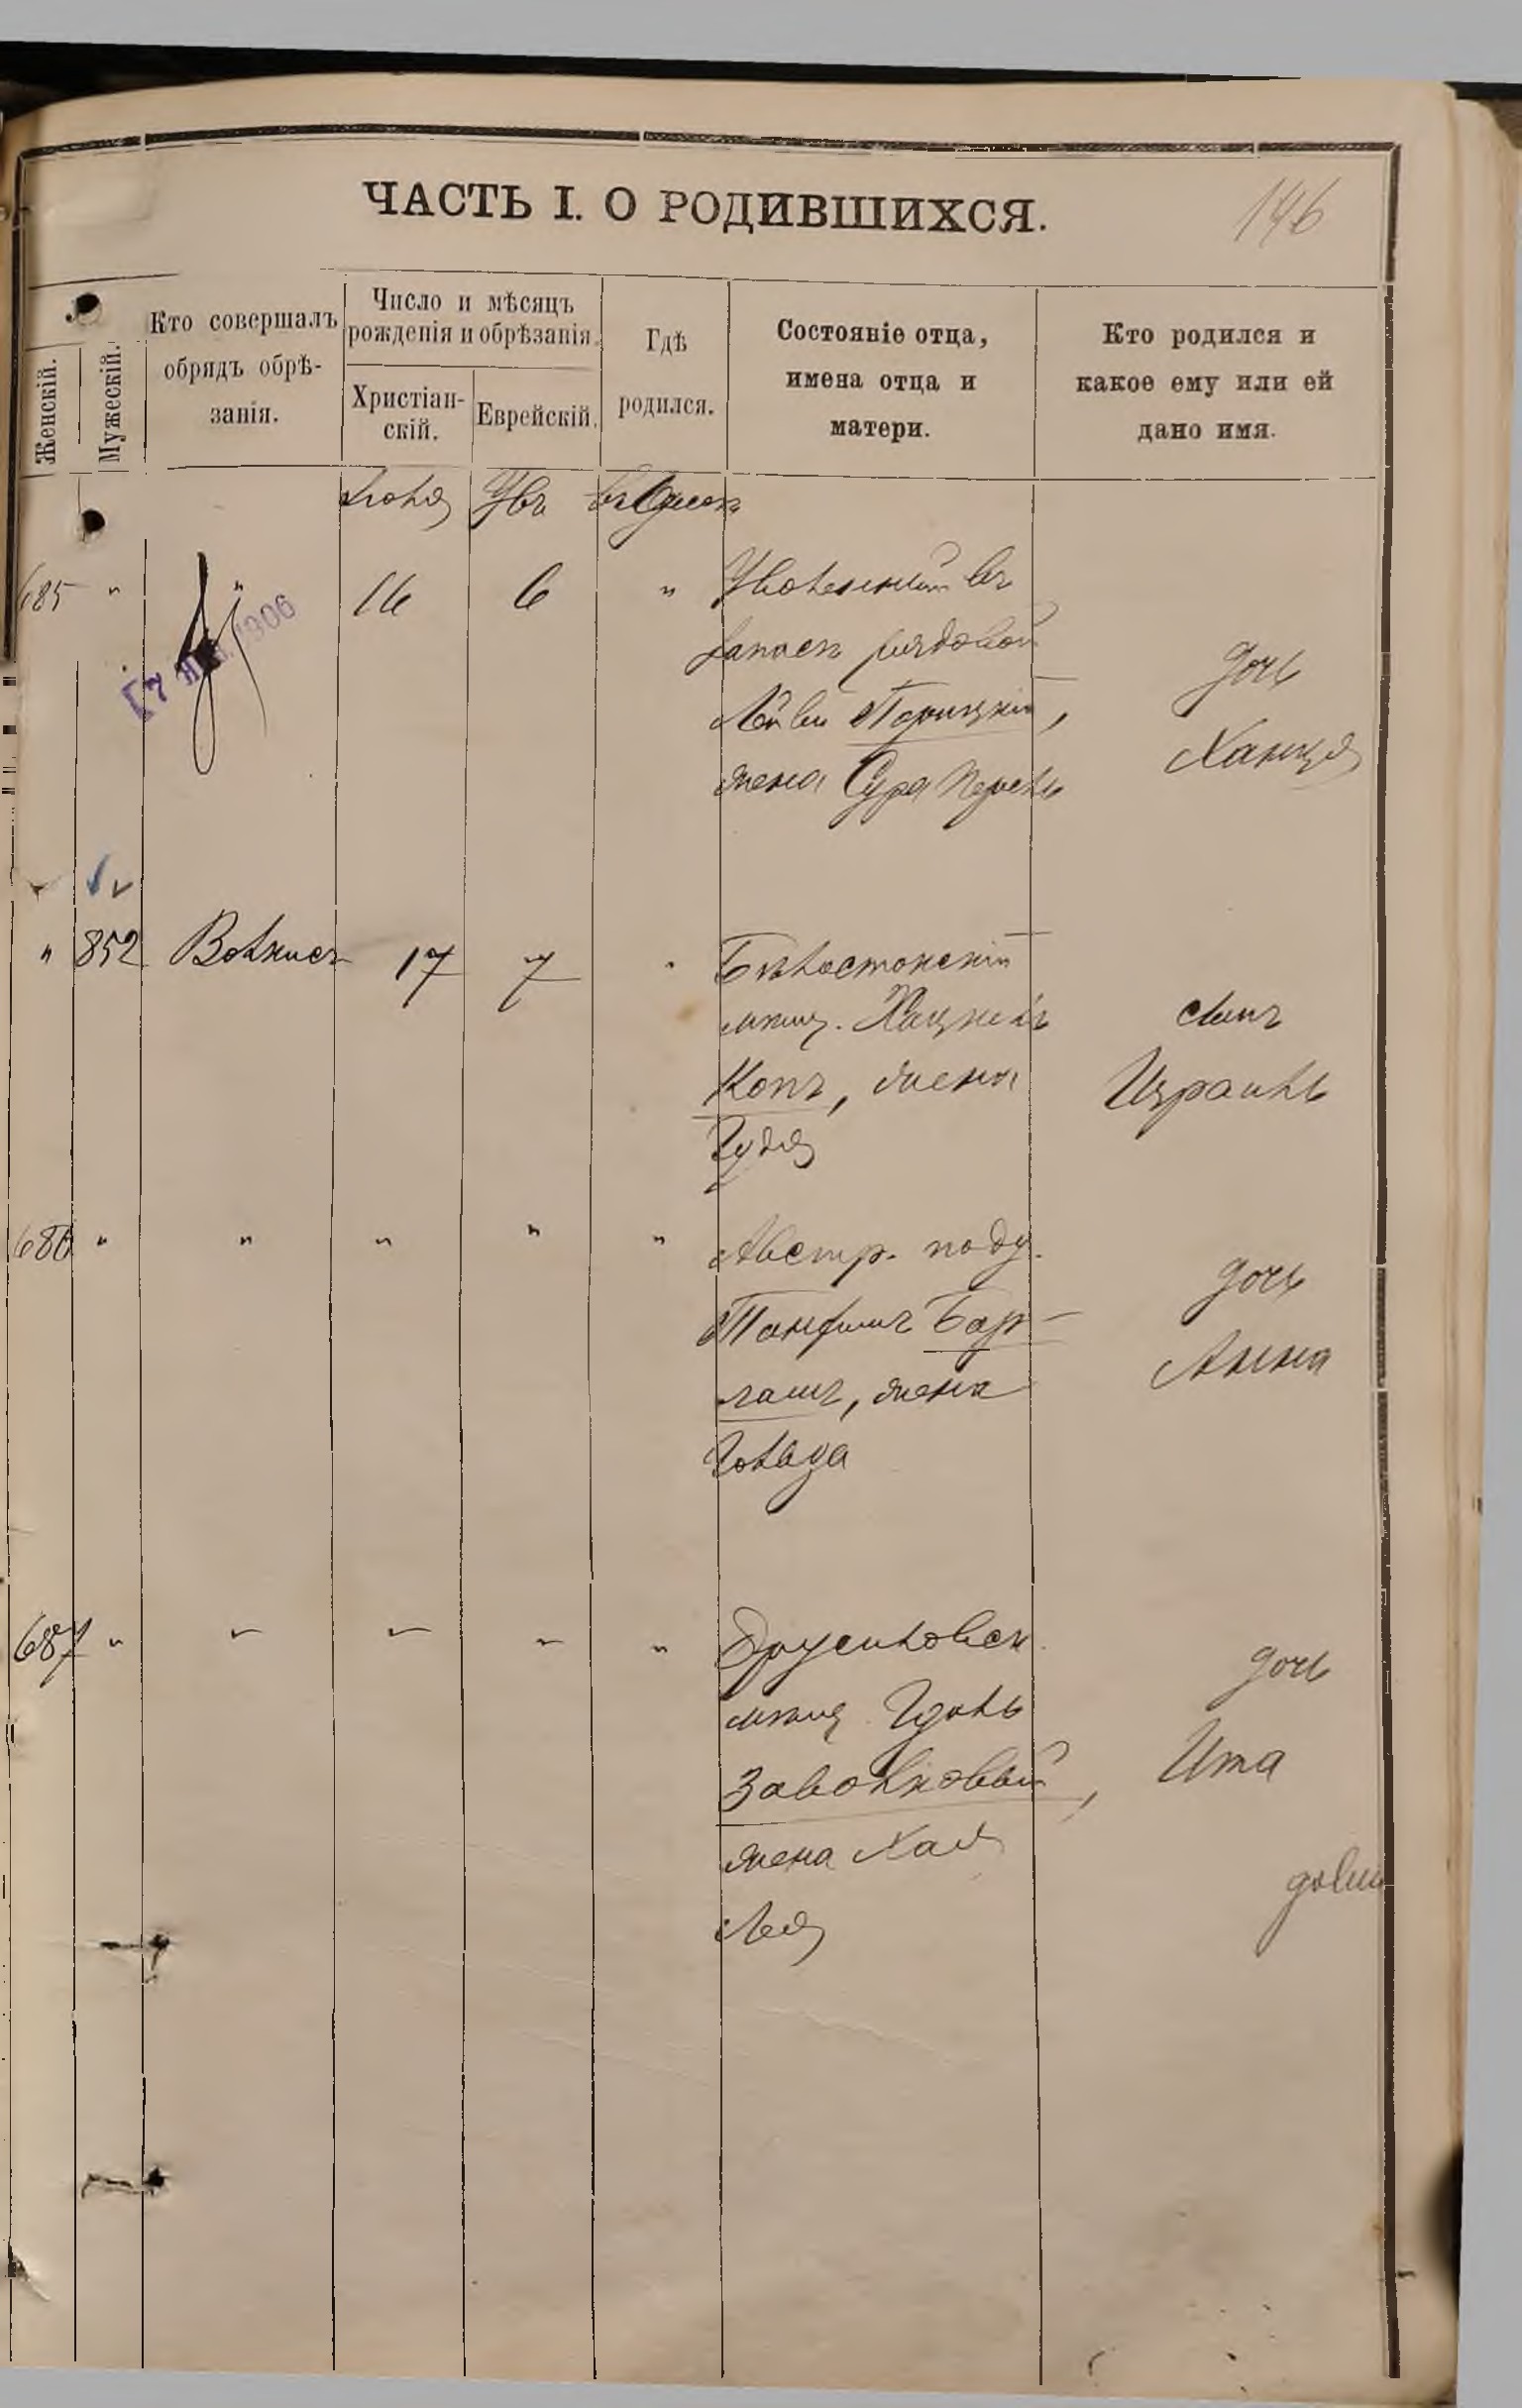 ЧАСТЬ I. О РОДИВШИХСЯ.
146
Женскій.
Мужескій.
Кто совершалъ
обрядъ обрѣ-
занія.
Число и мѣсяцъ
рожденія и обрѣзанія.
Христіан-
скій.
Еврейскій.
Гдѣ
родился.
Состояніе отца,
имена отца и
матери.
Кто родился и
какое ему или ей
дано имя.
Іюля Убъ въ Одессѣ
685 " " 16 6 " Уволенный въ
запасъ рядовой
Лейви Торицкій,
жена Сура Перель
дочь
Ханця
1906
852 Волкисъ 17 7 " Бѣлостокскій
мѣщ. Хацкель
Копъ, жена
Гудя
сынъ
Израиль
686 " " " " " Австр. подд.
Танфимъ Бар-
лашъ, жена
Голвда
дочь
Анна
687 " " " " " Друсиловск.
мѣщ. Гдаль
Заволковый,
жена Хая
Лея
дочь
Ита